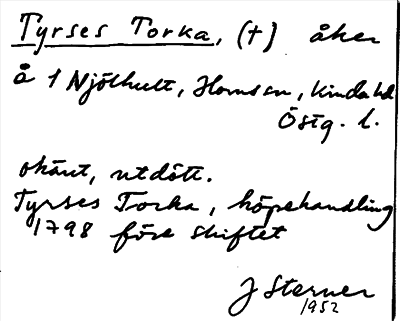 Tyrses Torka, (+) åker
å 1 Njölhult, Horns sn, Kinda hd
Östg. l.
okänt, utdött.
Tyrses Torka, köpehandling
1798 före skiftet
J Sterner
1952